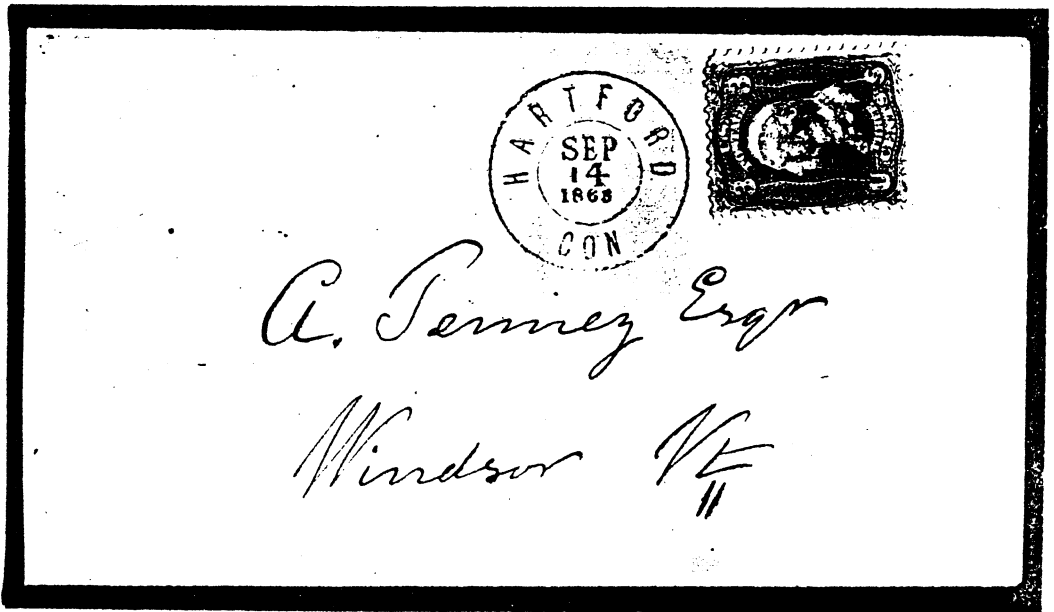 HARTFORD
SEP
14
1863
CON
A. Tenney Esqr
Windsor Vt